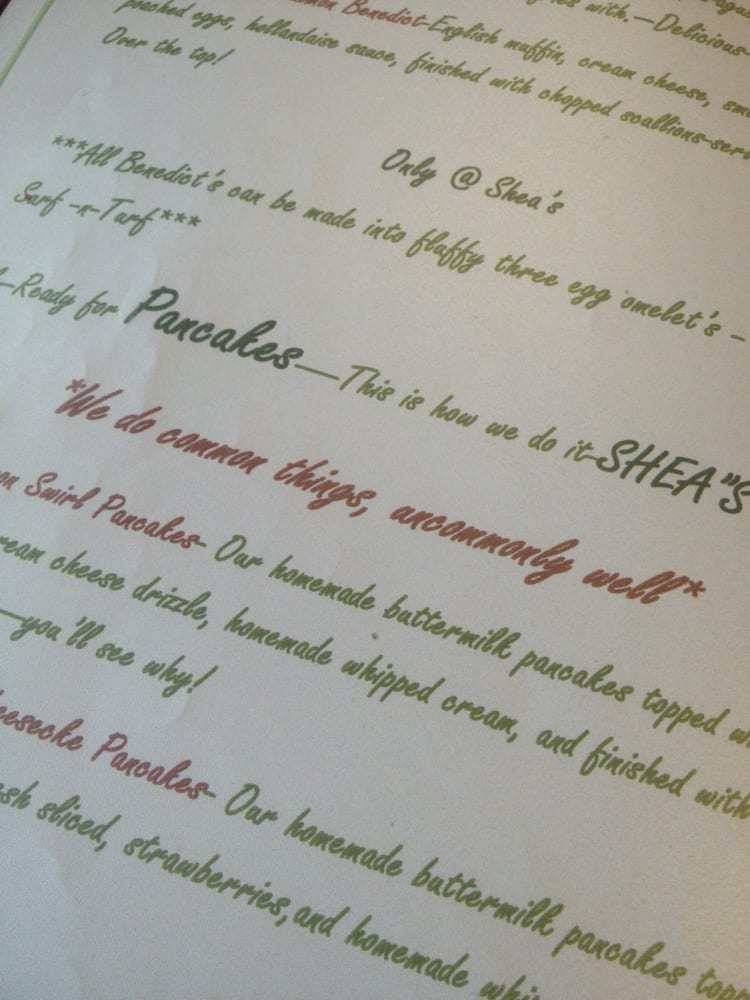 with.—Delicious-
Benedict-English muffin, cream cheese,
poached eggs, hollandaise sauce, finished with chopped scallions-
Over the top!
Only @ Shea's
***All Benedict's can be made into fluffy three egg omelet's –
Surf -n-Turf***
—Ready for Pancakes—This is how we do it-SHEA"S
*We do common things, uncommonly well*
Swirl Pancakes- Our homemade buttermilk pancakes topped
cheese drizzle, homemade whipped cream, and finished with
—you'll see why!
Pancakes- Our homemade buttermilk pancakes
sliced, strawberries,and homemade